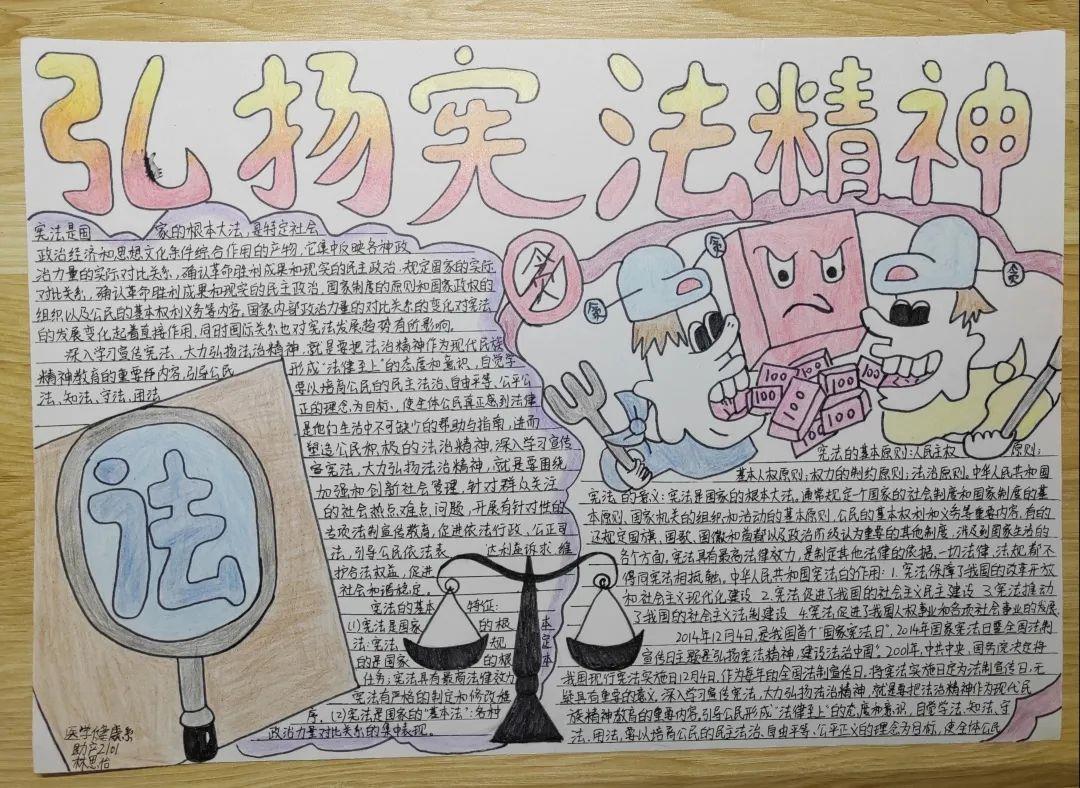 弘扬宪法精神
宪法是国家的根本大法,是特定社会
政治经济和思想文化条件综合作用的产物,它集中反映各种政
治力量的实际对比关系,确认革命胜利成果和现实的民主政治,规定国家的实际
对比关系,确认革命胜利成果和现实的民主政治,国家制度的原则和国家政权的
组织以及公民的基本权利义务等内容,国家内部政治力量的对比关系的变化对宪法
的发展变化起着直接作用,同时国际关系也对宪法发展趋势有所影响。
深入学习宣传宪法、大力弘扬法治精神,就是要把法治精神作为现代民族
精神教育的重要内容,引导公民形成“法律至上”的态度和意识,自觉学
法、知法、守法、用法要以培育公民的民主法治、自由平等、公平公
正的理念为目标,使全体公民真正感到法律
是他们生活中不可缺少的帮助与指南,进而
塑造公民积极的法治精神,深入学习宣传
宪法,大力弘扬法治精神,就是要围绕
加强和创新社会管理,针对群众关注
的社会热点难点问题,开展有针对性的
专项法制宣传教育,促进依法行政、公正司
法,引导公民依法表达利益诉求、维
护合法权益,促进
社会和谐稳定。
宪法的基本特征:
(1)宪法是国家的根本
法:宪法规定
的是国家的根本
任务;宪法具有最高法律效力
宪法有严格的制定和修改程
序。(2)宪法是国家的“基本法”:各种
政治力量对比关系的集中表现。
法
医学健康系
助产2101
林思怡
贪
贪
贪
贪
100
100
100
100
100
宪法的基本原则:人民主权原则;
基本人权原则;权力的制约原则;法治原则。中华人民共和国
宪法的意义:宪法是国家的根本大法,通常规定一个国家的社会制度和国家制度的基
本原则、国家机关的组织和活动的基本原则,公民的基本权利和义务等重要内容,有的
还规定国旗、国歌、国徽和首都以及政治阶级认为重要的其他制度,涉及到国家生活的
各个方面,宪法具有最高法律效力,是制定其他法律的依据,一切法律、法规都不
得同宪法相抵触。中华人民共和国宪法的作用:1.宪法保障了我国的改革开放
和社会主义现代化建设 2.宪法促进了我国的社会主义民主建设 3.宪法推动
了我国的社会主义法制建设 4.宪法促进了我国人权事业和各项社会事业的发展.
2014年12月4日,是我国首个“国家宪法日”。2014年国家宪法日暨全国法制
宣传日主题是弘扬宪法精神,建设法治中国”。2001年,中共中央、国务院决定将
我国现行宪法实施日12月4日,作为每年的全国法制宣传日,将宪法实施日定为法制宣传日,无
疑具有重要的意义,深入学习宣传宪法、大力弘扬法治精神,就是要把法治精神作为现代民
族精神教育的重要内容,引导公民形成“法律至上”的态度和意识,自觉学法、知法、守
法、用法,要以培育公民的民主法治、自由平等、公平正义的理念为目标,使全体公民